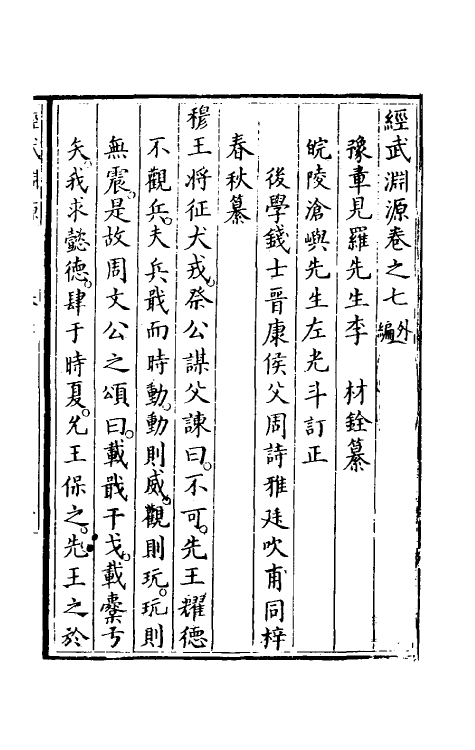 經武淵源卷之七外編
豫章見羅先生李　材銓纂
皖陵滄嶼先生左光斗訂正
後學錢士晉康侯父周詩雅廷吹甫同梓
春秋纂
穆王將征犬戎。祭公謀父諫曰。不可。先王耀德
不觀兵。夫兵戢而時動。動則威。觀則玩。玩則
無震。是故周文公之頌曰。載戢干戈。載櫜弓
矢。我求懿德。肆于時夏。允王保之。先王之於